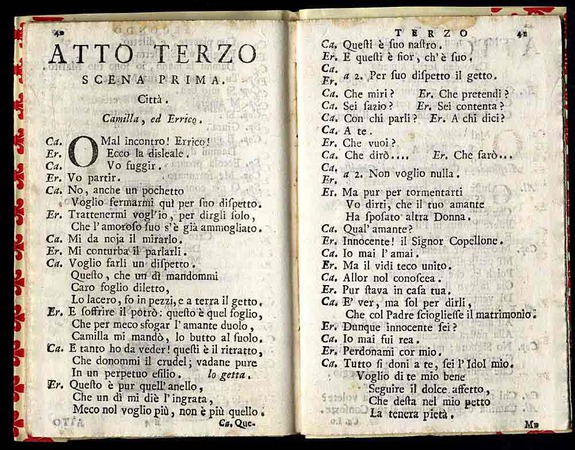 40
ATTO TERZO
SCENA PRIMA.
Città.
Camilla, ed Errico.
Ca. OMal incontro! Errico!
Er. Ecco la disleale.
Ca. Vo fuggir.
Er. Vo partir.
Ca. No, anche un pochetto
Voglio fermarmi qui per suo dispetto.
Er. Trattenermi vogl'io, per dirgli solo,
Che l'amoroso suo s'è già ammogliato.
Ca. Mi da noja il mirarlo.
Er. Mi conturba il parlarli.
Ca. Voglio farli un dispetto.
Questo, che un dì mandommi
Caro foglio diletto,
Lo lacero, fo in pezzi, e a terra il getto.
Er. E soffrire il potrò: questo è quel foglio,
Che per meco sfogar l'amante duolo,
Camilla mi mandò, lo butto al suolo.
Ca. E tanto ho da veder! questi è il ritratto,
Che donommi il crudel; vadane pure
In un perpetuo esilio. lo getta.
Er. Questo è pur quell'anello,
Che un dì mi diè l'ingrata,
Meco nol voglio più, non è più quello.
Ca. Que-
TERZO 41
Ca. Questi è suo nastro.
Er. E questi è fior, ch'è suo.
Ca.
Er. a 2. Per suo dispetto il getto.
Ca. Che miri? Er. Che pretendi?
Ca. Sei sazio? Er. Sei contenta?
Ca. Con chi parli? Er. A chi dici?
Ca. A te.
Er. Che vuoi?
Ca. Che dirò.... Er. Che farò...
Ca.
Er. a 2. Non voglio nulla.
Er. Ma pur per tormentarti
Vo dirti, che il tuo amante
Ha sposato altra Donna.
Ca. Qual'amante?
Er. Innocente! il Signor Copellone.
Ca. Io mai l'amai.
Er. Ma il vidi teco unito.
Ca. Allor nol conoscea.
Er. Pur stava in casa tua.
Ca. E' ver, ma sol per dirli,
Che col Padre sciogliesse il matrimonio.
Er. Dunque innocente sei?
Ca. Io mai fui rea.
Er. Perdonami cor mio.
Ca. Tutto si doni a te, sei l'Idol mio.
Voglio di te mio bene
Seguire il dolce affetto,
Che desta nel mio petto
La tenera pietà.